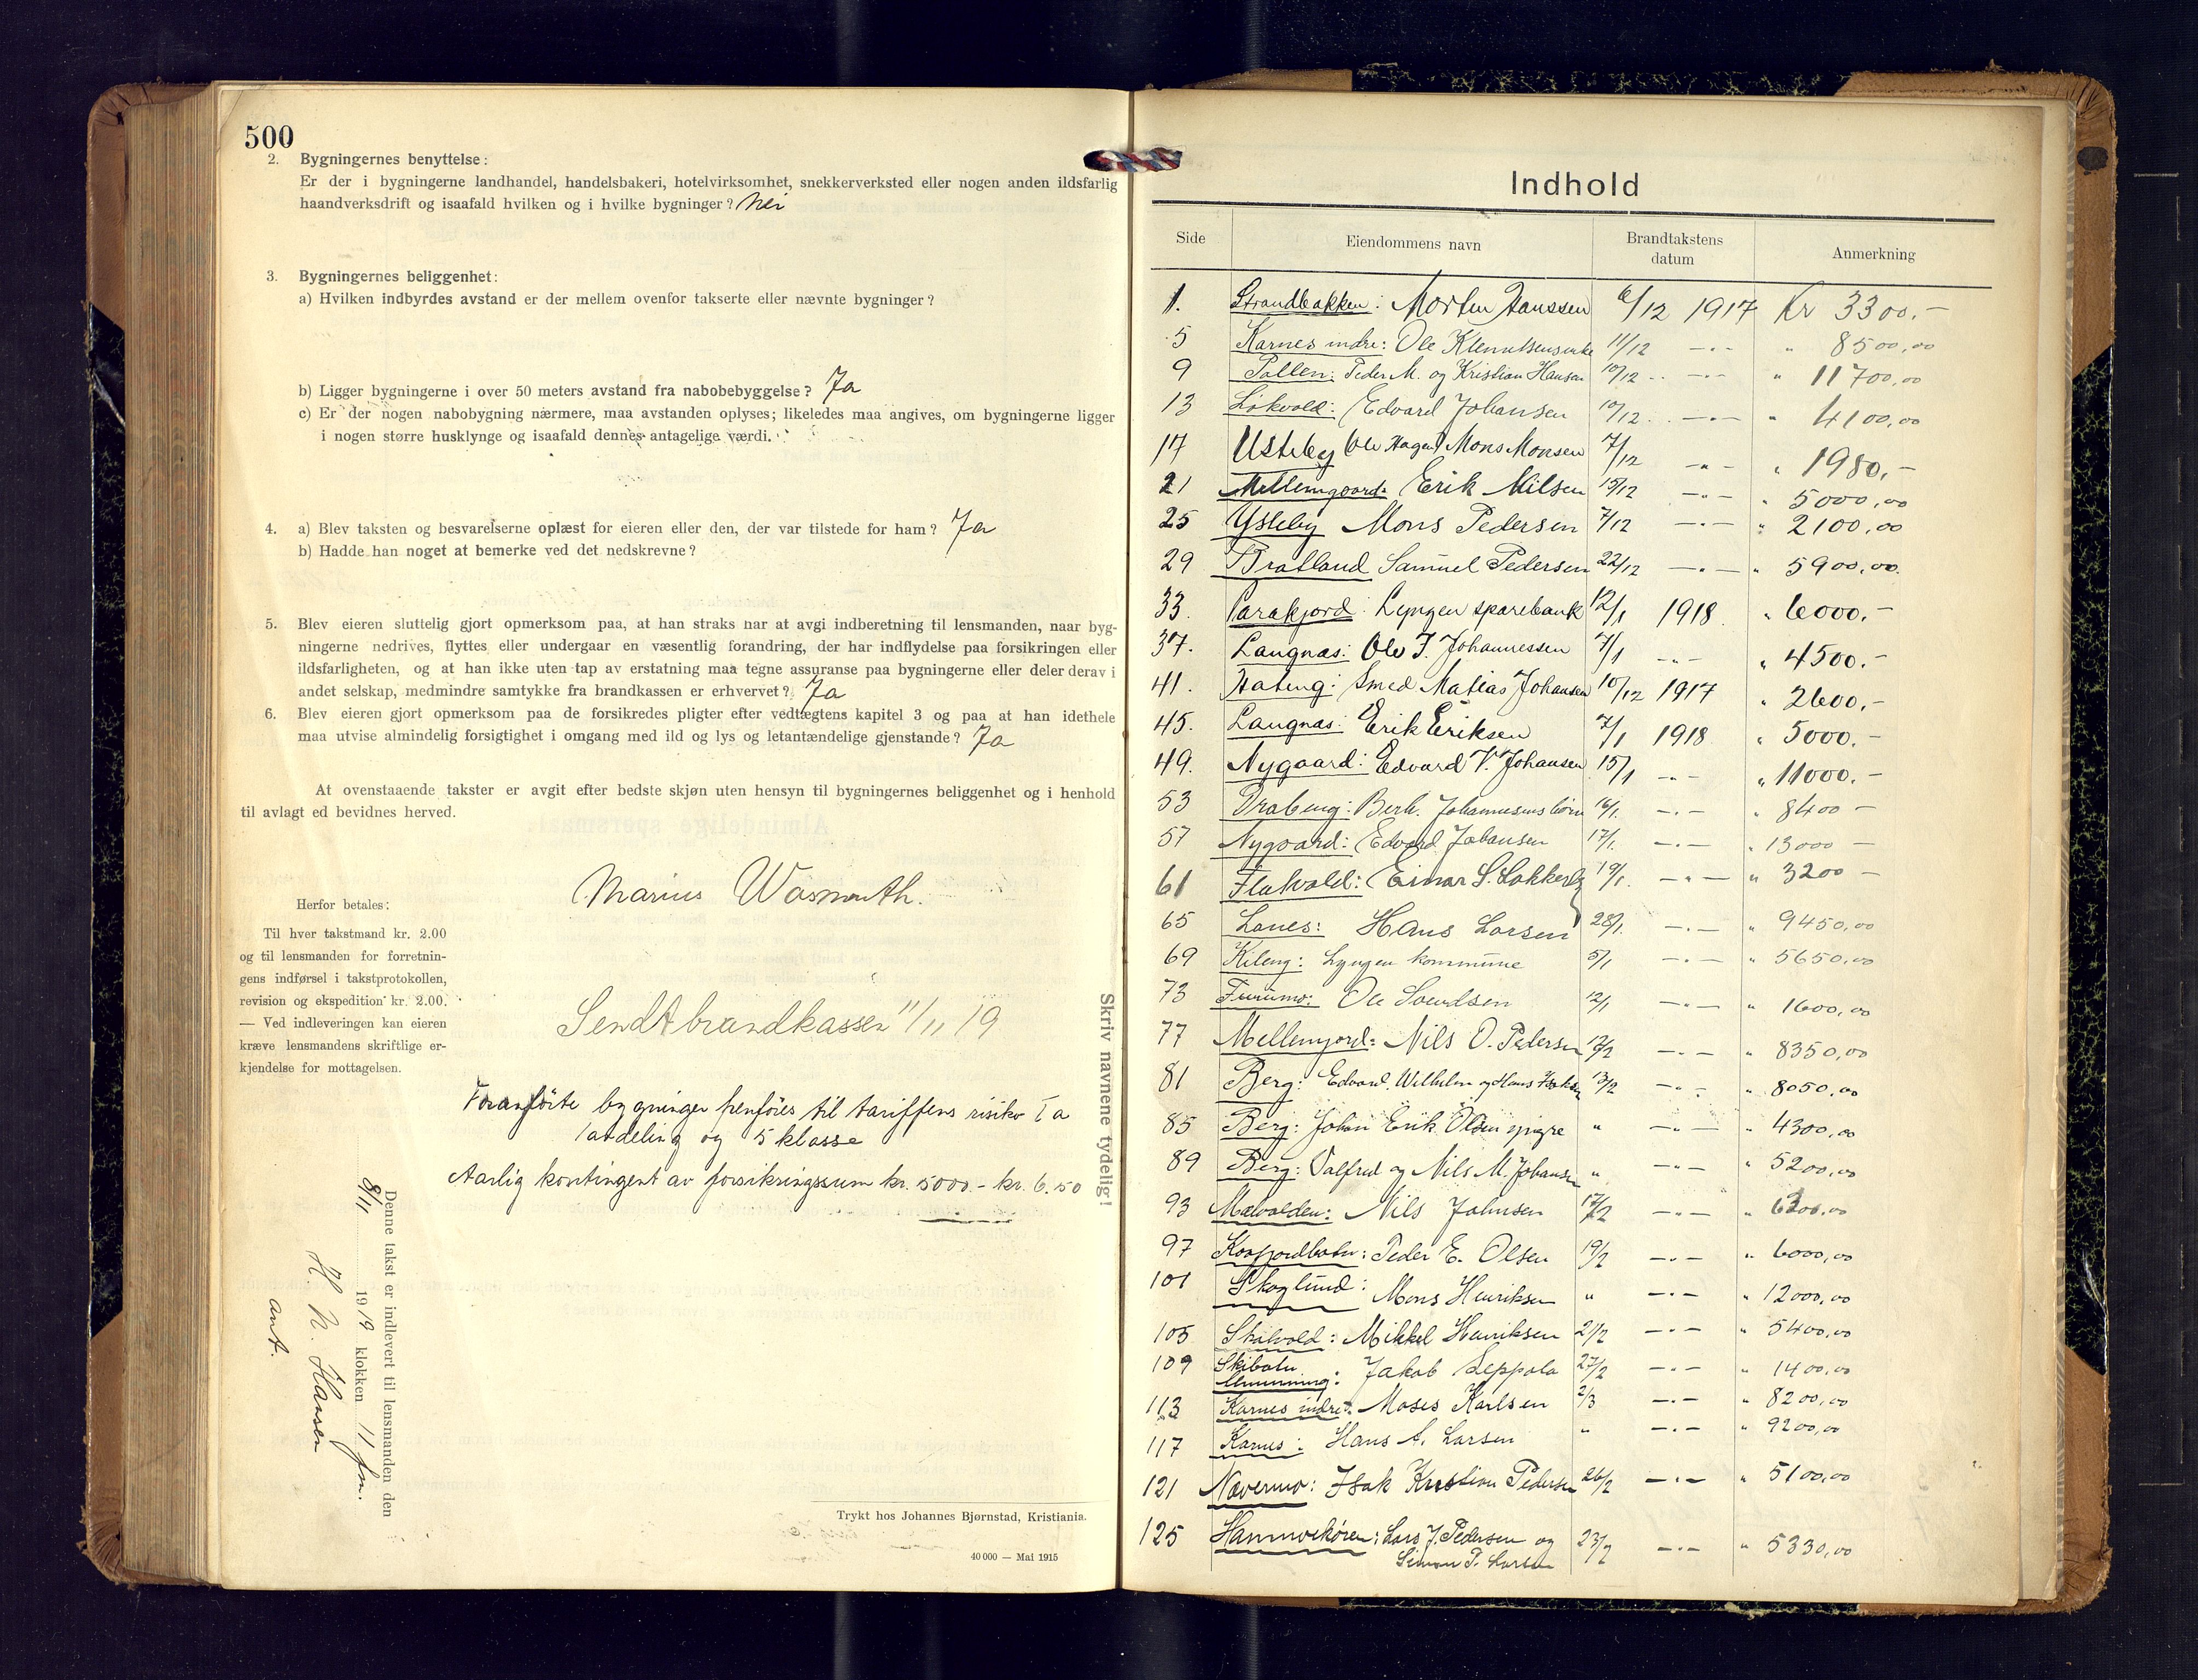 500
2. Bygningernes benyttelse:
Er der i bygningerne landhandel, handelsbakeri, hotelvirksomhet, snekkerverksted eller nogen anden ildsfarlig
haandverksdrift og isaafald hvilken og i hvilke bygninger? Nei
3. Bygningernes beliggenhet:
a) Hvilken indbyrdes avstand er der mellem ovenfor takserte eller nævnte bygninger?
b) Ligger bygningerne i over 50 meters avstand fra nabobebyggelse? Ja
c) Er der nogen nabobygning nærmere, maa avstanden oplyses; likeledes maa angives, om bygningerne ligger
i nogen større husklynge og isaafald dennes antagelige værdi.
4. a) Blev taksten og besvarelserne oplæst for eieren eller den, der var tilstede for ham? Ja
b) Hadde han noget at bemerke ved det nedskrevne?
5. Blev eieren sluttelig gjort opmerksom paa, at han straks har at avgi indberetning til lensmanden, naar byg-
ningerne nedrives, flyttes eller undergaar en væsentlig forandring, der har indflydelse paa forsikringen eller
ildsfarligheten, og at han ikke uten tap av erstatning maa tegne assuranse paa bygningerne eller deler derav i
andet selskap, medmindre samtykke fra brandkassen er erhvervet? Ja
6. Blev eieren gjort opmerksom paa de forsikredes pligter efter vedtægtens kapitel 3 og paa at han idethele
maa utvise almindelig forsigtighet i omgang med ild og lys og letantændelige gjenstande? Ja
At ovenstaaende takster er avgit efter bedste skjøn uten hensyn til bygningernes beliggenhet og i henhold
til avlagt ed bevidnes herved.
Marius Wasmuth.
Herfor betales:
Til hver takstmand kr. 2.00
og til lensmanden for forretnin-
gens indførsel i takstprotokollen,
revision og ekspedition kr. 2.00.
— Ved indleveringen kan eieren
kræve lensmandens skriftlige er-
kjendelse for mottagelsen.
Sendt brandkassen 11/11 19
Foranførte bygninger henføres til tariffens risiko I a
1 avdeling og 5 klasse
Aarlig kontingent av forsikringssum kr. 5000 - kr. 6.50
Skriv navnene tydelig!
Denne takst er indlevert til lensmanden den
8/11 1919 klokken 11 fm.
H N. Hansen
ant.
Trykt hos Johannes Bjørnstad, Kristiania.
40 000 — Mai 1915
Indhold
Side Eiendommens navn Brandtakstens datum Anmerkning
1. Strandbakken: Morten Hanssen 6/12 1917 Kr 3300.-
5 Karnes indre: Ole 11/12 -"- " 8500,00
9 Pollen: Peder M. og Kristian Hansen 10/12 -"- " 11700,00
13 Løkvold: Edvard Johansen 10/12 -"- " 4100,00
17 Ysteby Ole Hagen Mons Monsen 7/12 -"- " 1980.-
21 Mellemgaard: Erik Nilsen 15/12 -"- " 5000,00
25 Ysteby Mons Pedersen 7/12 -"- " 2100,00
29 Bratland Samuel Pedersen 22/12 -"- " 5900,00
33. Parakjord: Lyngen sparebank 12/1 1918 " 6000.-
37. Langnæs: Ole J. Johannessen 7/1 -"- " 4500.-
41. Hateng: Smed Matias Johansen 10/12 1917 " 2600.-
45. Langnæs: Erik Eriksen 7/1 1918 " 5000.-
49. Nygaard: Edvard V. Johansen 15/1 -"- " 11000.-
53 Brabeng: Berh. Johannesens børn 16/1. -"- " 8400 -
57 Nygaard: Edvard Johansen 17/1. -"- " 13000 -
61 Flatvold: Einar S. Lokkerly 19/1. -"- " 3200 -
65 Lanes: Hans Larsen 28/1. -"- " 9450,00
69 Kileng: Lyngen kommune 5/1 -"- " 5650,00
73 Furumo: Ole 12/1 -"- " 1600,00
77 Mellemjord: Nils O. Pedersen 12/2 -"- " 8350,00
81 Berg: Edvard Wilhelm og Hans Isaksen 13/2 -"- " 8050,00
85 Berg: Johan Erik Olsen yngre " -"- " 4300,00
89 Berg: Valfred og Nils M. Johansen " -"- " 5200,00
93 Mælvolden: Nils Johnsen 17/2 -"- " 6200,00
97 Kaafjordbotn: Peder E. Olsen 19/2 -"- " 6000,00
101 Skoglund: Mons Henriksen " -"- " 12000,00
105 Skilvold: Mikkel Henriksen 21/2 -"- " 5400,00
109 Skibotn Almenning: Jakob Seppola 27/2 -"- " 1400,00
113 Karnes indre: Moses Karlsen 2/3 -"- " 8200,00
117 Karnes: Hans A. Larsen " -"- " 9200,00
121 Nævermo: Isak Kristian Pedersen 26/2 -"- " 5100,00
125 Hamnvikøren: Lars J. Pedersen og 23/2 -"- " 5330,00
Simon P. Larsen